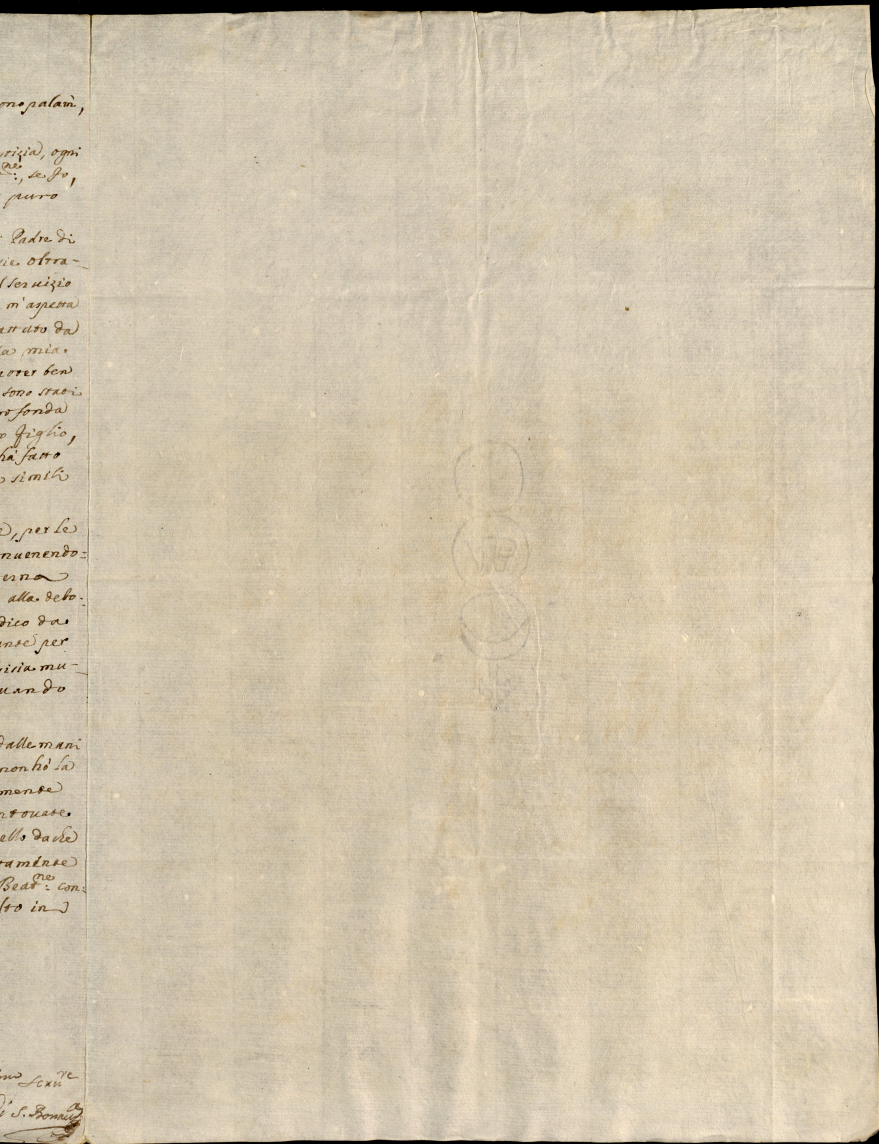 ono palam,
tizia, ogni
ne:, se Jo,
puro
Padre di
ie oltra-
servizio
m'aspetta
attuto da
la mia.
voter ben
sono stati
rofonda
o figlio,
hà fatto
simili
e, per le
nuenendo:
erna
alla debo-
dico da
ante per
isia mu-
uando
dalle mani
non hò la
mente
ntouate
ello da che
tamente
Beat.ne: con:
lto in
Seru.re
di S. Bonau